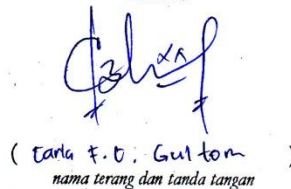 ( Earla F. O. Gultom )
nama terang dan tanda tangan